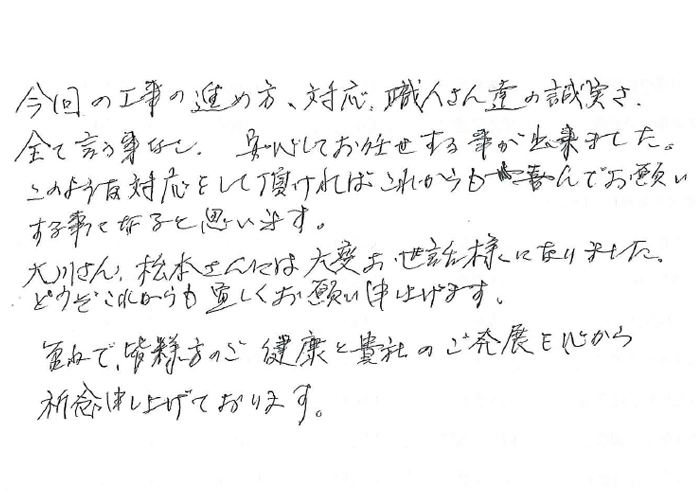 今回の工事の進め方、対応、職人さん達の誠実さ、
全て言う事なし、安心してお任せする事が出来ました。
このような対応をして頂ければこれからも喜んでお願い
する事になると思います。
大川さん、松本さんには大変お世話様になりました。
どうぞこれからも宜しくお願い申上げます。
重ねて、皆様方のご健康と貴社のご発展を心から
祈念申し上げております。